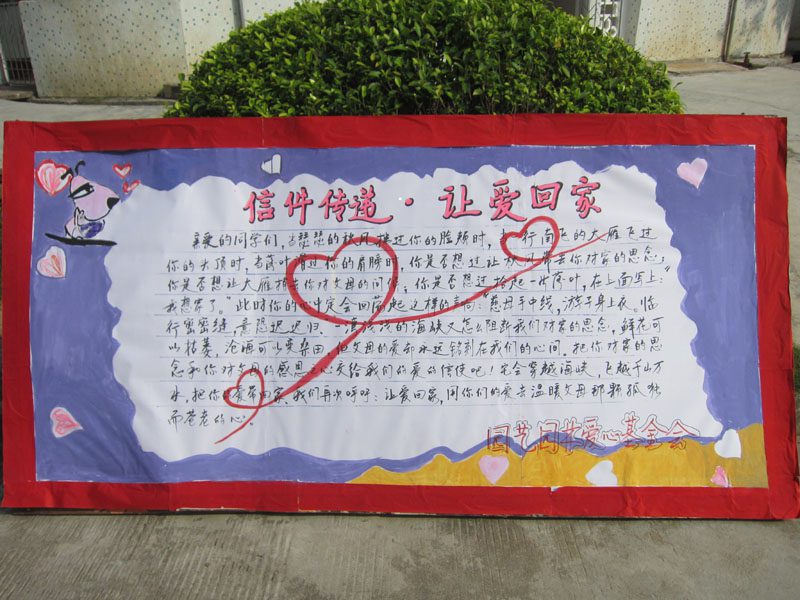 信件传递·让爱回家
亲爱的同学们,当瑟瑟的秋风掠过你的脸颊时,当一行南飞的大雁飞过
你的头顶时,当落叶滑过你的肩膀时,你是否想过让秋风带去你对家的思念,
你是否想让大雁捎去你对父母的问候,你是否想过拾起一片落叶,在上面写上:“
我想家了。”此时你的心中定会回荡起这样的声音:“慈母手中线,游子身上衣。临
行密密缝,意恐迟迟归。一湾浅浅的海峡又怎么阻断我们对家的思念,鲜花可
以枯萎,沧海可以变桑田,但父母的爱却永远铭刻在我们的心间。把你对家的思
念和你对父母的感恩之心交给我们的爱的信使吧!它会穿越海峡,飞越千山万
水,把你的爱带回家,我们再次呼吁:让爱回家,用你们的爱去温暖父母那颗孤独
而苍老的心。
园艺园林爱心基金会